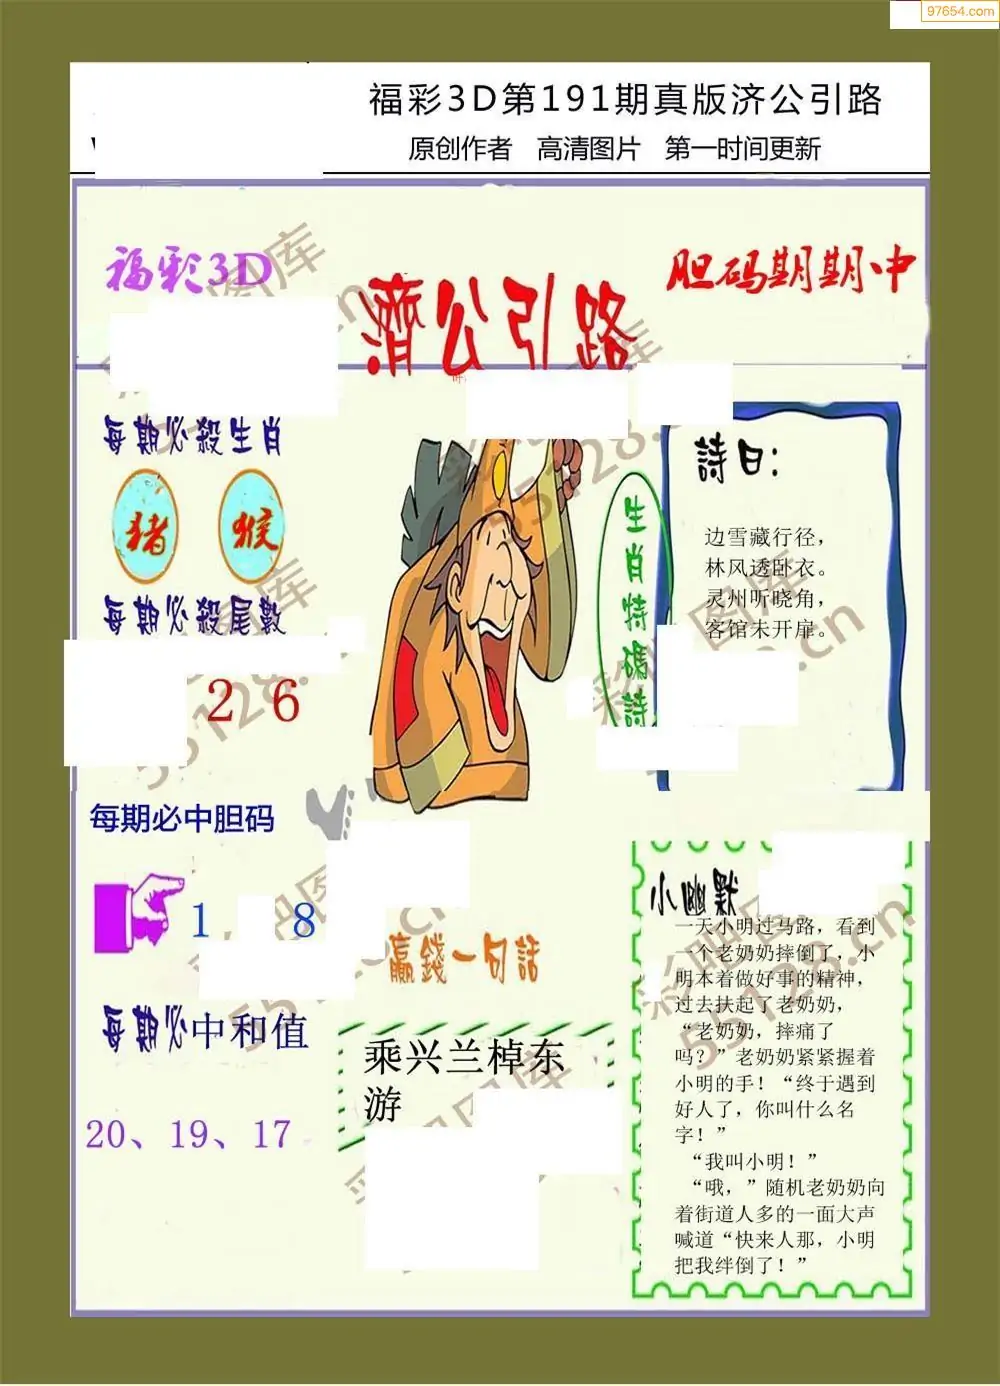 97654.com
福彩3D第191期真版济公引路
原创作者 高清图片 第一时间更新
福彩3D
濟公引路
胆码期期中
每期必殺生肖
猪 猴
每期必殺尾數
2 6
每期必中胆码
1 8
每期必中和值
20、19、17
生肖特碼詩
詩曰:
边雪藏行径，
林风透卧衣。
灵州听晓角，
客馆未开扉。
赢錢一句話
乘兴兰棹东
游
小幽默
一天小明过马路，看到
一个老奶奶摔倒了，小
明本着做好事的精神，
过去扶起了老奶奶，
“老奶奶，摔痛了
吗？”老奶奶紧紧握着
小明的手！“终于遇到
好人了，你叫什么名
字！”
“我叫小明！”
“哦，”随机老奶奶向
着街道人多的一面大声
喊道“快来人那，小明
把我绊倒了！”